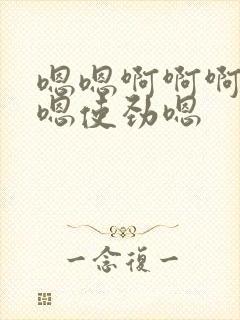 嗯嗯啊啊啊
嗯使劲嗯
一念復一